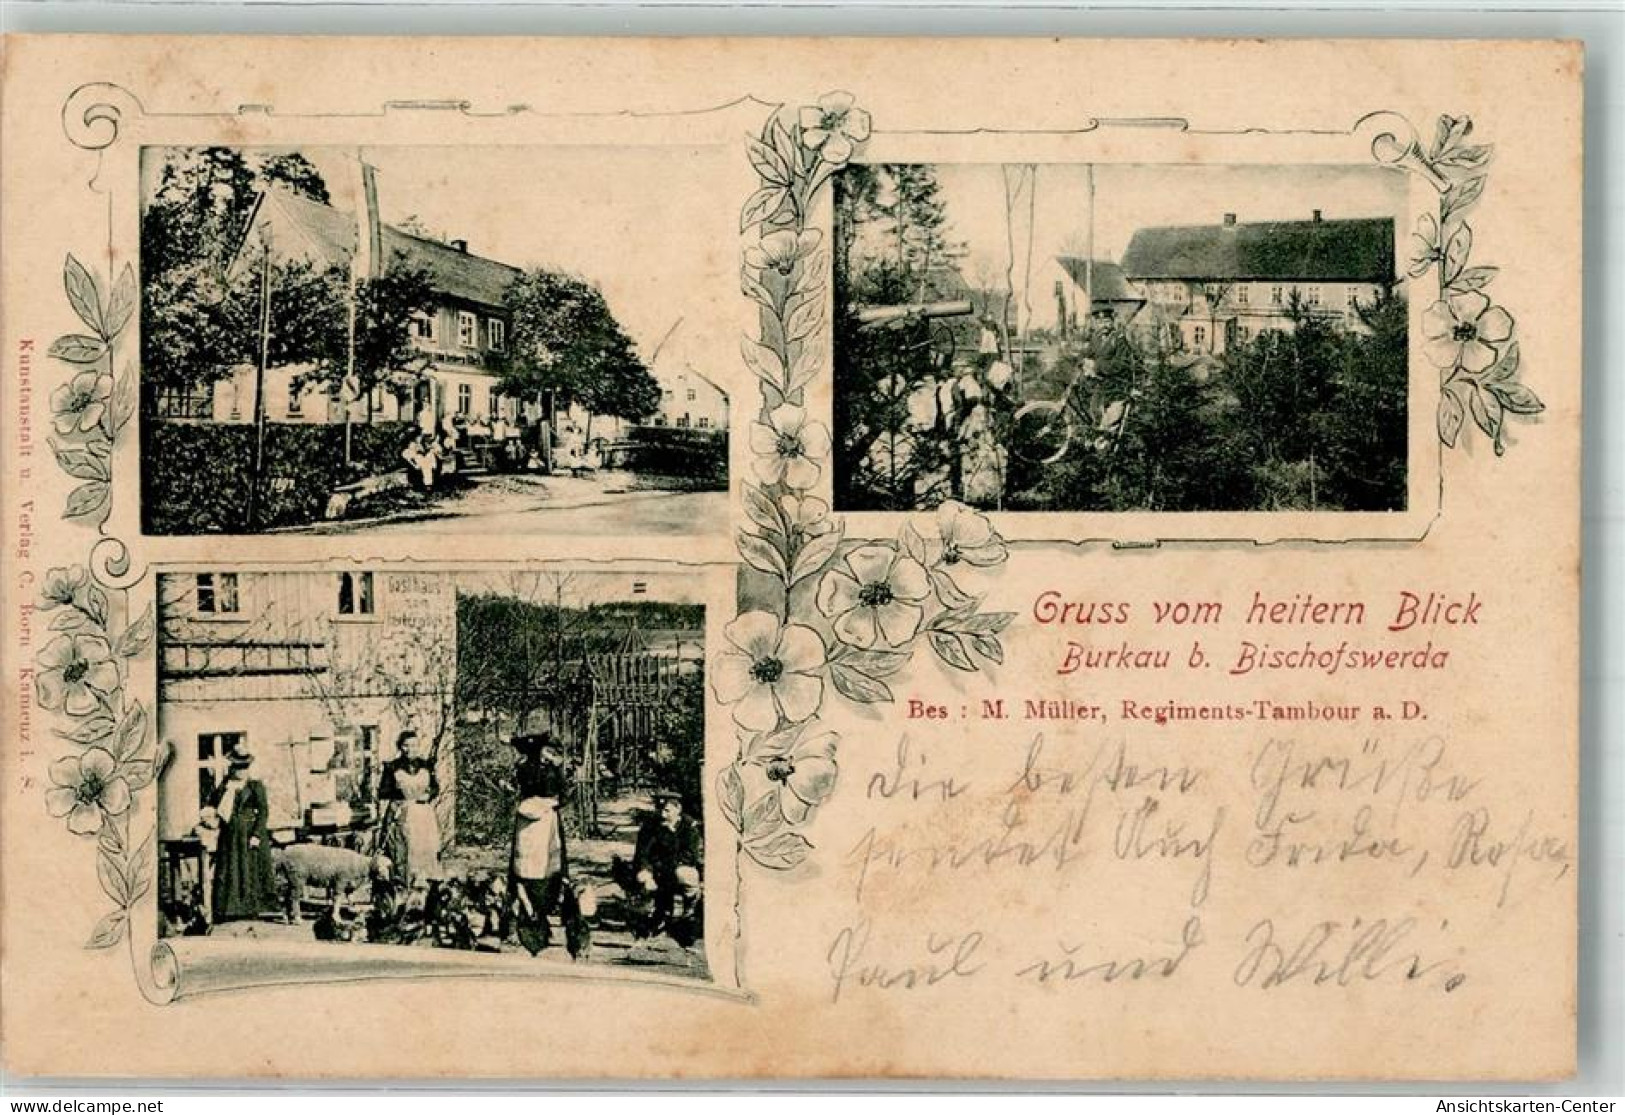 Kunstanstalt u. Verlag C. Born Kamenz i. S.
Gasthaus
zum
Gruss vom heitern Blick
Burkau b. Bischofswerda
Bes : M. Müller, Regiments-Tambour a. D.
Die besten Grüße
sendet Euch Frida, Rosa,
Paul und Willi.
delcampe.net
Ansichtskarten-Center